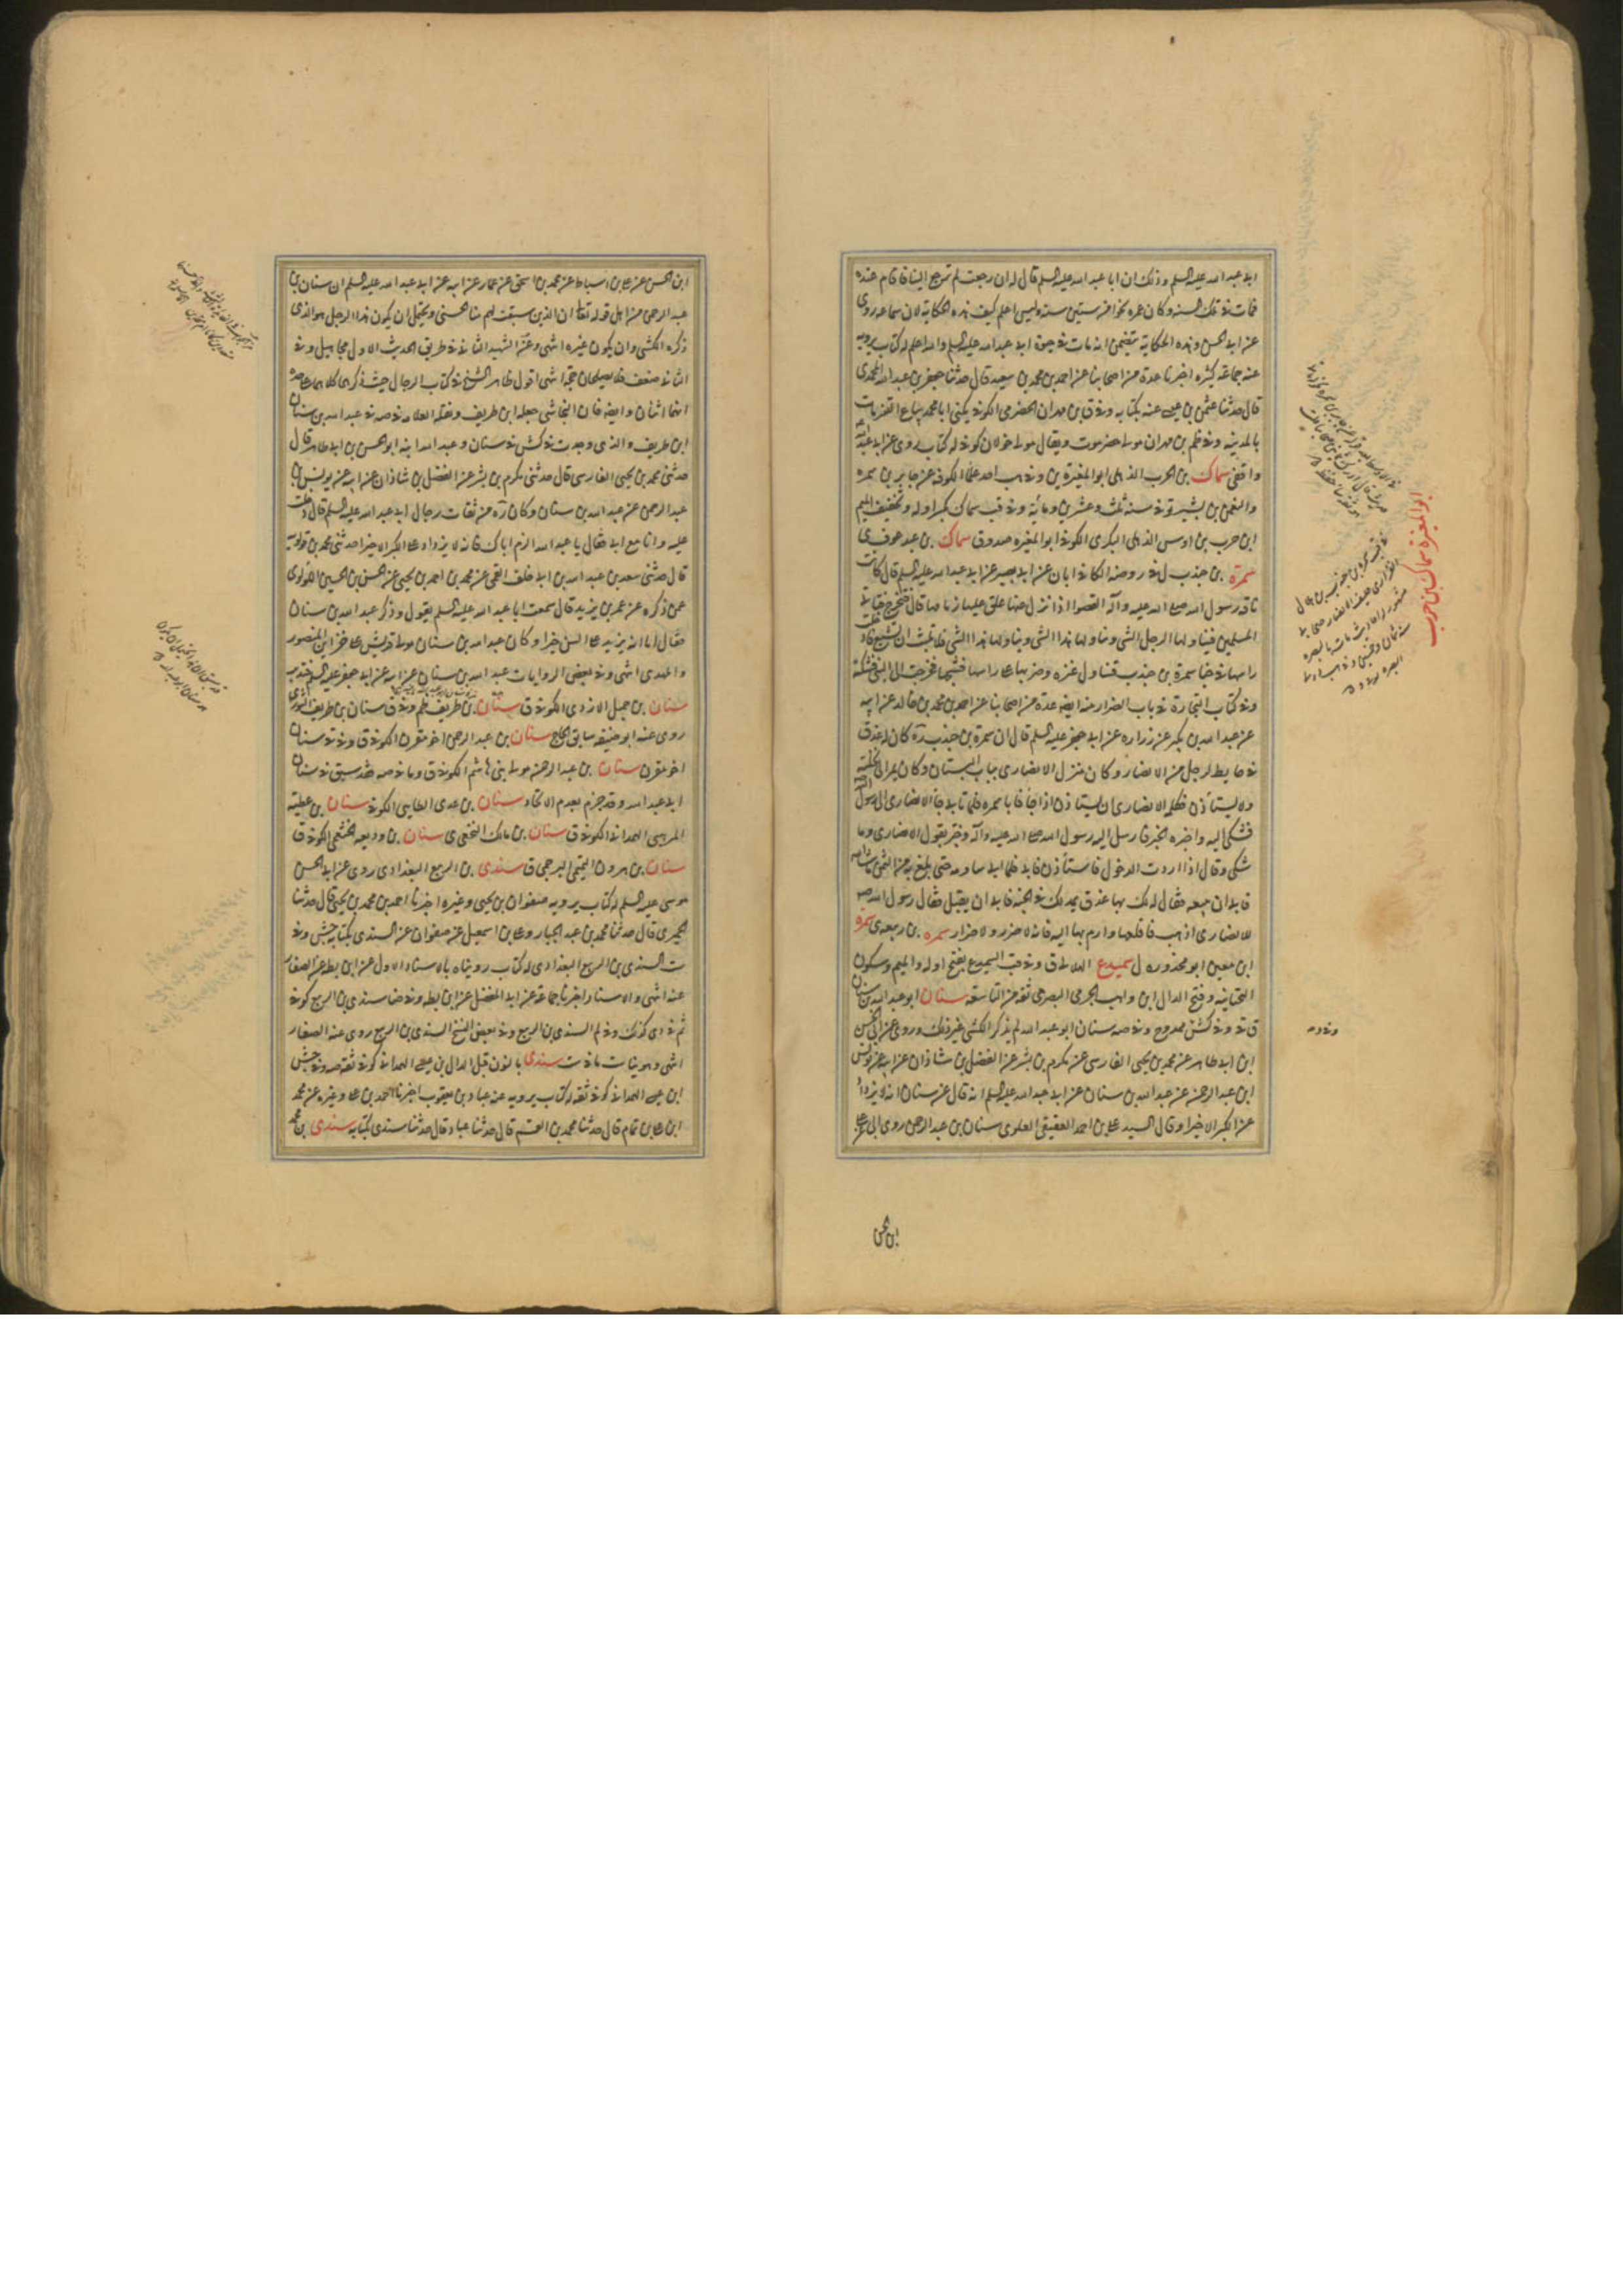 ابى عبد الله عليه السلم وذلك ان ابا عبد الله عليه السلم قال له ان رجعت لم ترجع الينا فاقام عنده
فمات فى تلك السنه وكان عمره نحوا من ستين سنه وليس اعلم كيف هذه الحكاية لان سماعه روى
عن ابى الحسن وهذه الحكاية تتضمن انه مات فى حيوة ابى عبد الله عليه السلم والله اعلم له كتاب يرويه
عنه جماعة كثيره اخبرنا عدة من اصحابنا عن احمد بن محمد بن سعيد قال حدثنا جعفر بن عبد الله المحمدى
قال حدثنا عثمن بن عيسى عنه بكتابه وفى ق بن مهران الحضرمى الكوفى يكنى ابا محمد بياع القز مات
بالمدينه وفى ظم بن مهران مولى حضرموت ويقال مولى خولان كوفى له كتاب روى عن ابى عبد الله
واقفى سماك بن الحرب الذهلى ابو المغيرة بن وذهب احد علماء الكوفه عن جابر بن سمره
والنعمن بن بشير توفى سنه ثلث وعشرين ومائه وفى قب سماك بكسر اوله وتخفيف الميم
ابن حرب بن اوس الذهلى البكرى الكوفى ابو المغيره صدوق سماك بن عبد عوف ى
سمرة بن جندب ل فى روضه الكافى ابان عن ابى بصير عن ابى عبد الله عليه السلم قال كانت
ناقه رسول الله صلى الله عليه وآله القصوا اذا نزل عنها علق عليها زمامها قال فتخرج فتاتى
المسلمين فيناولها الرجل الشى ويناولها هذا الشى ويناولها هذا الشى فلا تلبث ان تشبع قال
راسها فى خبا سمرة بن جندب فتناول عنزه وضرب بها على راسها فشجها فخرجت الى النبى فشكته
وفى كتاب التجارة فى باب الضرار منه ايضه عدة من اصحابنا عن احمد بن محمد بن خالد عن ابيه
عن عبد الله بن بكير عن زراره عن ابى جعفر عليه السلم قال ان سمرة بن جندب كان له عذق
فى حايط لرجل من الانصار وكان منزل الانصارى بباب البستان وكان يمر الى نخلته
ولا يستأذن فكلمه الانصارى ان يستاذن اذا جأ فابا سمره فلما تابى جأ الانصارى الى رسول الله
فشكى اليه واخبره الخبر فارسل اليه رسول الله صلى الله عليه وآله وخبر بقول الانصارى وما
شكى وقال اذا اردت الدخول فاستأذن فابى فلما ابى ساومه حتى بلغ به من الثمن ما شا الله
فابى ان يبيعه فقال لك بها عذق يمد لك فى الجنه فابى ان يقبل فقال رسول الله ص
للانصارى اذهب فاقلعها وارم بها اليه فانه لا ضرر ولا ضرار سمره بن ربيعه ى سمره
ابن معين ابو محذوره ل سميدع الهلالى ق وفى قب السميدع بفتح اوله والميم وسكون
التحتانيه وفتح الدال ابن واهب الجرمى البصرى ثقه من التاسعه سنان ابو عبد الله بن سنان
ق فى وفى كش ممدوح وفى صه سنان ابو عبد الله لم يذكر الكشى غير ذلك وروى عن ابى الحسن
ابن ابى طاهر عن محمد بن يحيى الفارسى عن مكرم بن بشر عن الفضل بن شاذان عن ابيه عن يونس
ابن عبد الرحمن عن عبد الله بن سنان عن ابى عبد الله عليه السلم انه قال عن سنان انه لا يزداد
عن الكبر الا خيرا وقال السيد على بن احمد العقيقى العلوى سنان بن عبد الرحمن روى ابى عن على
ابن الحسن
ابو المغيرة سماك بن حرب
ابن الحسن عن على بن اسباط عن محمد بن اسحق عن عمار عن ابيه عن ابى عبد الله عليه السلم ان سنان بن
عبد الرحمن من اهل قوله تعالى ان الذين سبقت لهم منا الحسنى ويحتمل ان يكون هذا الرجل هو الذى
ذكره الكشى وان يكون غيره انتهى وعن الشهيد الثانى فى طريق الحديث الاول مجاهيل وفى
الثانى ضعف فلا يصلحان حجة انتهى اقول ظاهر الشيخ فى كتاب الرجال حيث ذكرهما كلاهما على حده
انهما اثنان وايضه فان النجاشى جعله ابن طريف ونقله العلامه فى صه فى عبد الله بن سنان
ابن طريف والذى وجدت فى كش فى سنان وعبد الله ابنه ابو الحسن بن ابى طاهر قال
حدثنى محمد بن يحيى الفارسى قال حدثنى مكرم بن بشر عن الفضل بن شاذان عن ابيه عن يونس بن
عبد الرحمن عن عبد الله بن سنان وكان ره من ثقات رجال ابى عبد الله عليه السلم قال دخلت
عليه وانا مع ابى فقال يا عبد الله الزم اباك فانه لا يزداد على الكبر الا خيرا حدثنى محمد بن قولويه
قال حدثنى سعد بن عبد الله بن ابى خلف القمى عن محمد بن احمد بن يحيى عن الحسن بن الحسين اللؤلؤى
عمن ذكره عن عمر بن يزيد قال سمعت ابا عبد الله عليه السلم يقول وذكر عبد الله بن سنان
فقال اما انه يزيد على السن خيرا وكان عبد الله بن سنان مولى قريش على خزاين المنصور
والمهدى انتهى وفى بعض الروايات عبد الله بن سنان عن ابيه عن ابى جعفر عليه السلم فتدبر
سنان بن جميل الازدى الكوفى ق سنان بن طريف ظم وفى ق سنان بن طريف الثورى
روى عنه ابو حنيفه سابق الحاج سنان بن عبد الرحمن اخو مقرن الكوفى ق وفى فى سنان
اخو مقرن سنان بن عبد الرحمن مولى بنى هاشم الكوفى ق وما فى صه فقد سبق فى سنان
ابى عبد الله وقد جزم بعدم الاتحاد سنان بن عدى الطايى الكوفى سنان بن عطيه
المرهبى الهمدانى الكوفى ق سنان بن مالك النخعى ى سنان بن وديعه الخثعمى الكوفى ق
سنان بن هرون التيمى البرجمى ق سندى بن الربيع البغدادى روى عن ابى الحسن
موسى عليه السلم له كتاب يرويه صفوان بن يحيى وغيره اخبرنا احمد بن محمد بن يحيى قال حدثنا
الحميرى قال حدثنا محمد بن عبد الجبار وعلى بن اسمعيل عن صفوان عن السندى بكتابه جش وفى
ست السندى بن الربيع البغدادى له كتاب رويناه بالاسناد الاول عن ابن بطه عن الصفار
عنه انتهى والاسناد اخبرنا جماعة عن ابى المفضل عن ابن بطه وفى ضا سندى بن الربيع كوفى
ثم فى دى كذلك وفى لم السندى بن الربيع وفى بعض النسخ السندى بن الربيع روى عنه الصفار
انتهى وهو ينافى ما فى ست سندى بالنون قبل الدال بن عيسى الهمدانى كوفى ثقه صه وفى جش
ابن عيسى الهمدانى كوفى ثقه له كتاب يرويه عنه عباد بن يعقوب اخبرنا احمد بن على وغيره عن محمد
ابن على بن تمام قال حدثنا محمد بن القسم قال حدثنا عباد قال حدثنا سندى بكتابه سندى بن محمد